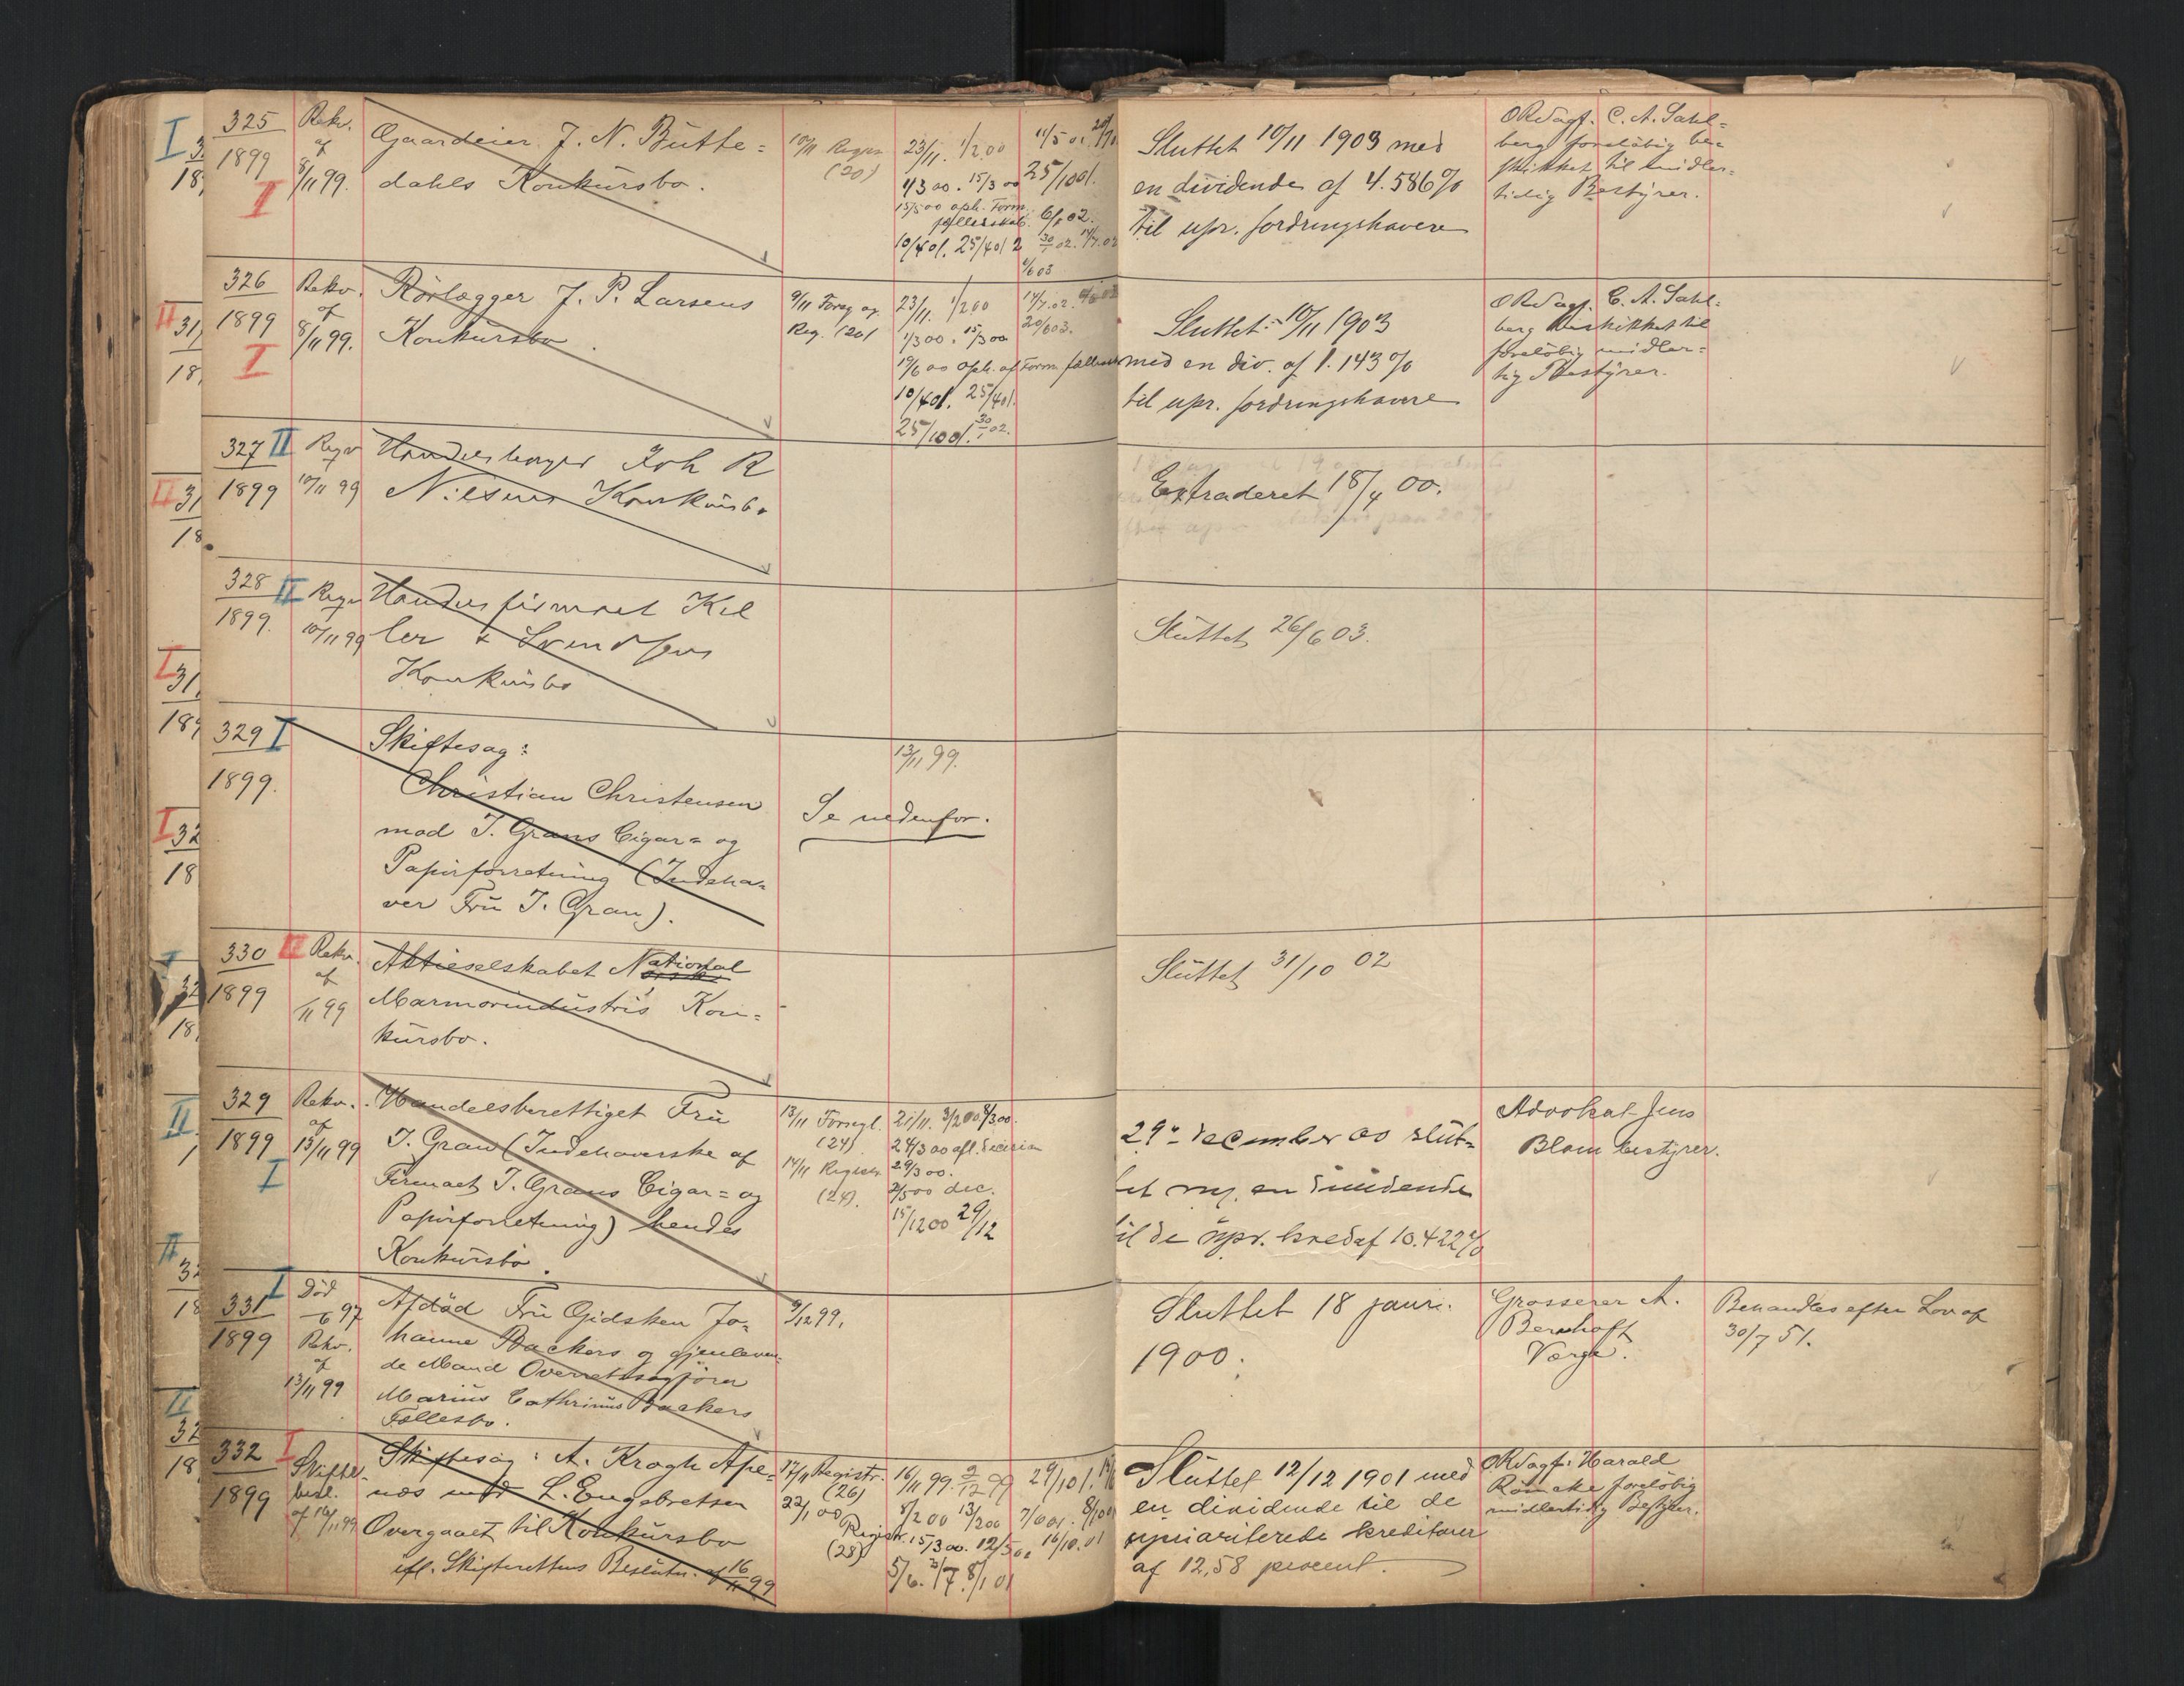 325
1899
II
Rekv.
af
8/11 99.
Gaardeier J. N. Butte=
dahls Konkursbo.
10/11 Regr.
(20)
23/11. 1/2 00
1/3 00. 15/3 00
15/5 00 oph. Form.
fællesskab.
10/4 01. 25/4 01
25/10 01.
6/1 02.
30/1 02.
Sluttet 10/11 1903 med
en dividende af 4.586 %
til upr. fordringshavere
ORSagf. C. A. Sahl=
berg foreløbig be=
skikket til midler=
tidig Bestyrer.
326
1899
I
Rekv.
af
8/11 99.
Rørlægger J. P. Larsens
Konkursbo.
9/11 Forsg. og
Reg. (20)
23/11. 1/2 00
1/3 00. 15/3 00
oph. af Form. fælles
10/4 01. 25/4 01.
25/10 01. 30/1 02.
14/7. 02.
20/6 03.
Sluttet 10/11 1903
med en div. af 1.143 %
til upr. fordringshavere
ORSagf. C. A. Sahl=
berg beskikket til
foreløbig midler=
tig Bestyrer.
327 II
1899
10/11 99
Joh R
Nilsens Konkursbo
Extraderet 18/4 00.
328 II
1899.
10/11 99
Handelsfirmaet Kel
ler & Svendsens
Konkursbo
Sluttet 26/6 03.
329 I
1899.
Skiftesag:
Christian Christensen
mod J. Grans Cigar= og
Papirforretning (Indeha=
ver Fru J. Gran).
13/11 99.
Se nedenfor.
330 II
1899
Rekv.
af
/11 99
Aktieselskabet National
Marmorindustris Kon=
kursbo.
Sluttet 31/10 02
329
1899
I
Rekv.
af
13/11 99
Handelsberettiget Fru
J. Gran (Indehaverske af
Firmaet J. Grans Cigar= og
Papirforretning) hendes
Konkursbo.
13/11 Forsegl.
(24)
14/11 Registr.
(24).
21/11. 3/2 00 8/3 00.
24/3 00 afl. Decision
29/3 00.
2/5 00 dec.
15/12 00 29/12
29de December 00 slut=
tet m. en dividende
til de upr. kred af 10.422 %
Advokat Jens
Blom bestyrer.
I
331
1899
Død
/6 97
Rekv.
af
13/11 99
Afdød Fru Gidsken Jo=
hanne Backers og gjenleven=
de Mand Overretssagfører
Marius Cathrinus Backers
Fællesbo.
9/12 99.
Sluttet 18 januar
1900.
Grosserer A.
Bernhoft
Værge.
Behandles efter Lov af
30/7 51.
332 I
1899
Skifte=
besl.
af 16/11 99
Skiftesag: A. Kragh Ape=
næs mod L. Engebretsen
Overgaaet til Konkursbo
ifl. Skifterettens Beslutn. af 16/11 99
17/11 Registr.
(26)
22/1 00
Registr.
(28)
16/11 99. 9/12 99
8/2 00 13/2 00
15/3 00. 12/5 00
5/6. 3/7. 8/1 01
29/1 01.
7/6 01.
16/10. 01
Sluttet 12/12 1901 med
en dividende til de
upriviterede kreditorer
af 12,58 procent.
ORSagf. Harald
Römcke foreløbig
midlertidig Bestyrer.